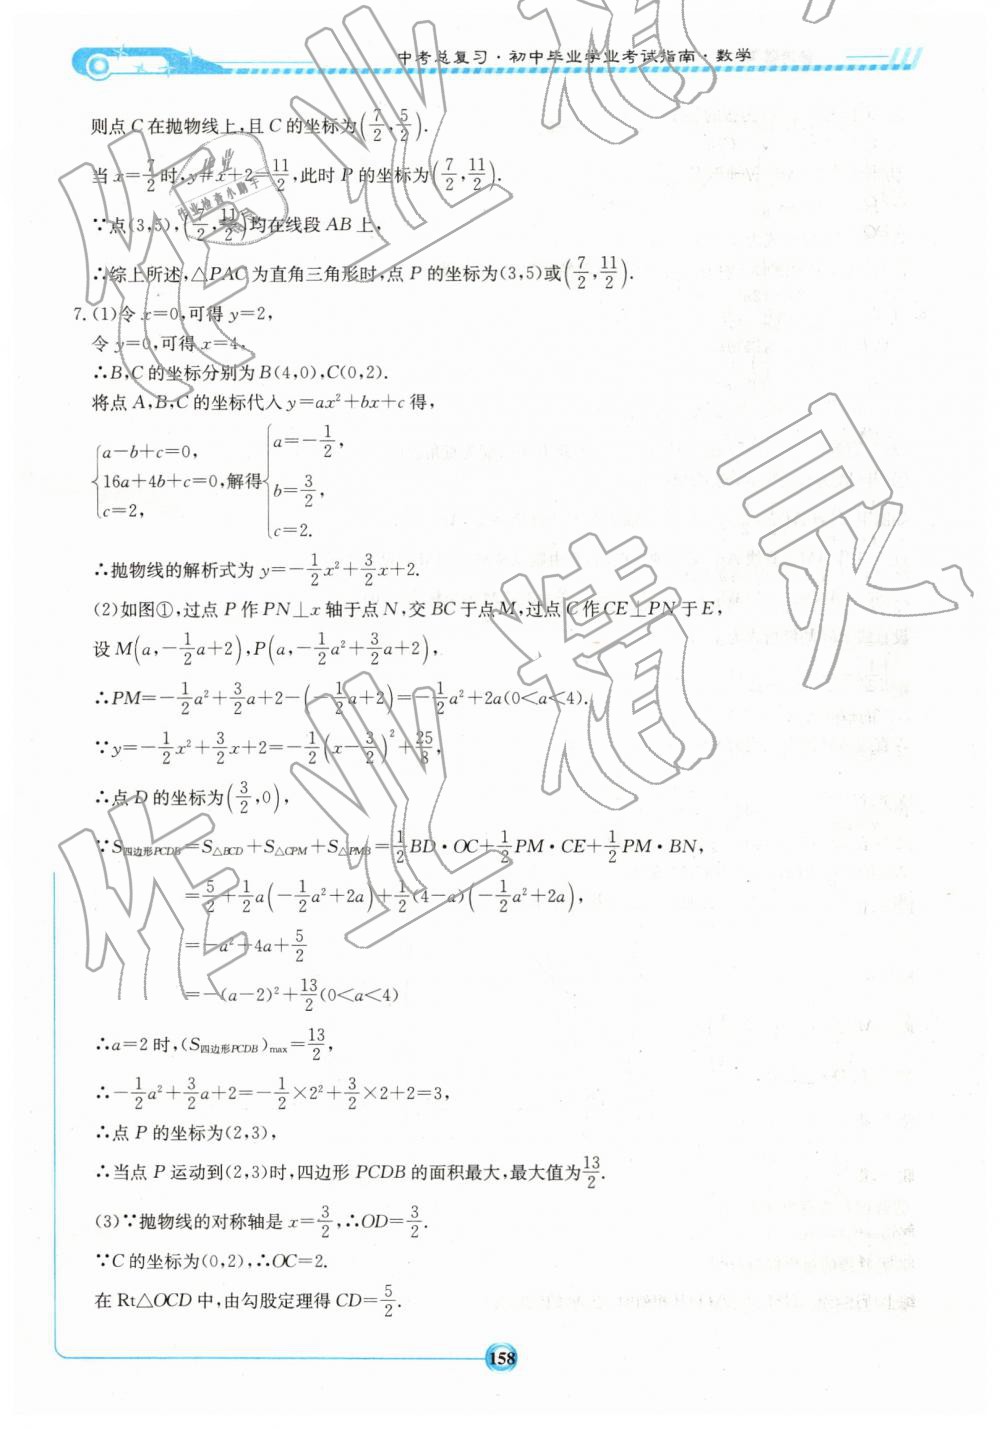 中考总复习·初中毕业学业考试指南·数学
则点C在抛物线上,且C的坐标为(7/2,5/2).
当x=7/2时,y=x+2=11/2,此时P的坐标为(7/2,11/2).
∵点(3,5),(7/2,11/2)均在线段AB上,
∴综上所述,△PAC为直角三角形时,点P的坐标为(3,5)或(7/2,11/2).
7.(1)令x=0,可得y=2,
令y=0,可得x=4,
∴B,C的坐标分别为B(4,0),C(0,2).
将点A,B,C的坐标代入y=ax²+bx+c得,
{a-b+c=0, 16a+4b+c=0, c=2, 解得{a=-1/2, b=3/2, c=2.
∴抛物线的解析式为y=-1/2x²+3/2x+2.
(2)如图①,过点P作PN⊥x轴于点N,交BC于点M,过点C作CE⊥PN于E,
设M(a,-1/2a+2),P(a,-1/2a²+3/2a+2),
∴PM=-1/2a²+3/2a+2-(-1/2a+2)=-1/2a²+2a(0<a<4).
∵y=-1/2x²+3/2x+2=-1/2(x-3/2)²+25/8,
∴点D的坐标为(3/2,0),
∵S四边形PCDB=S△BCD+S△CPM+S△PMB=1/2BD·OC+1/2PM·CE+1/2PM·BN,
=5/2+1/2a(-1/2a²+2a)+1/2(4-a)(-1/2a²+2a),
=-a²+4a+5/2
=-(a-2)²+13/2(0<a<4)
∴a=2时,(S四边形PCDB)max=13/2,
∴-1/2a²+3/2a+2=-1/2×2²+3/2×2+2=3,
∴点P的坐标为(2,3),
∴当点P运动到(2,3)时,四边形PCDB的面积最大,最大值为13/2.
(3)∵抛物线的对称轴是x=3/2,∴OD=3/2.
∵C的坐标为(0,2),∴OC=2.
在Rt△OCD中,由勾股定理得CD=5/2.
158
作业精灵
作业
作业检查小助手